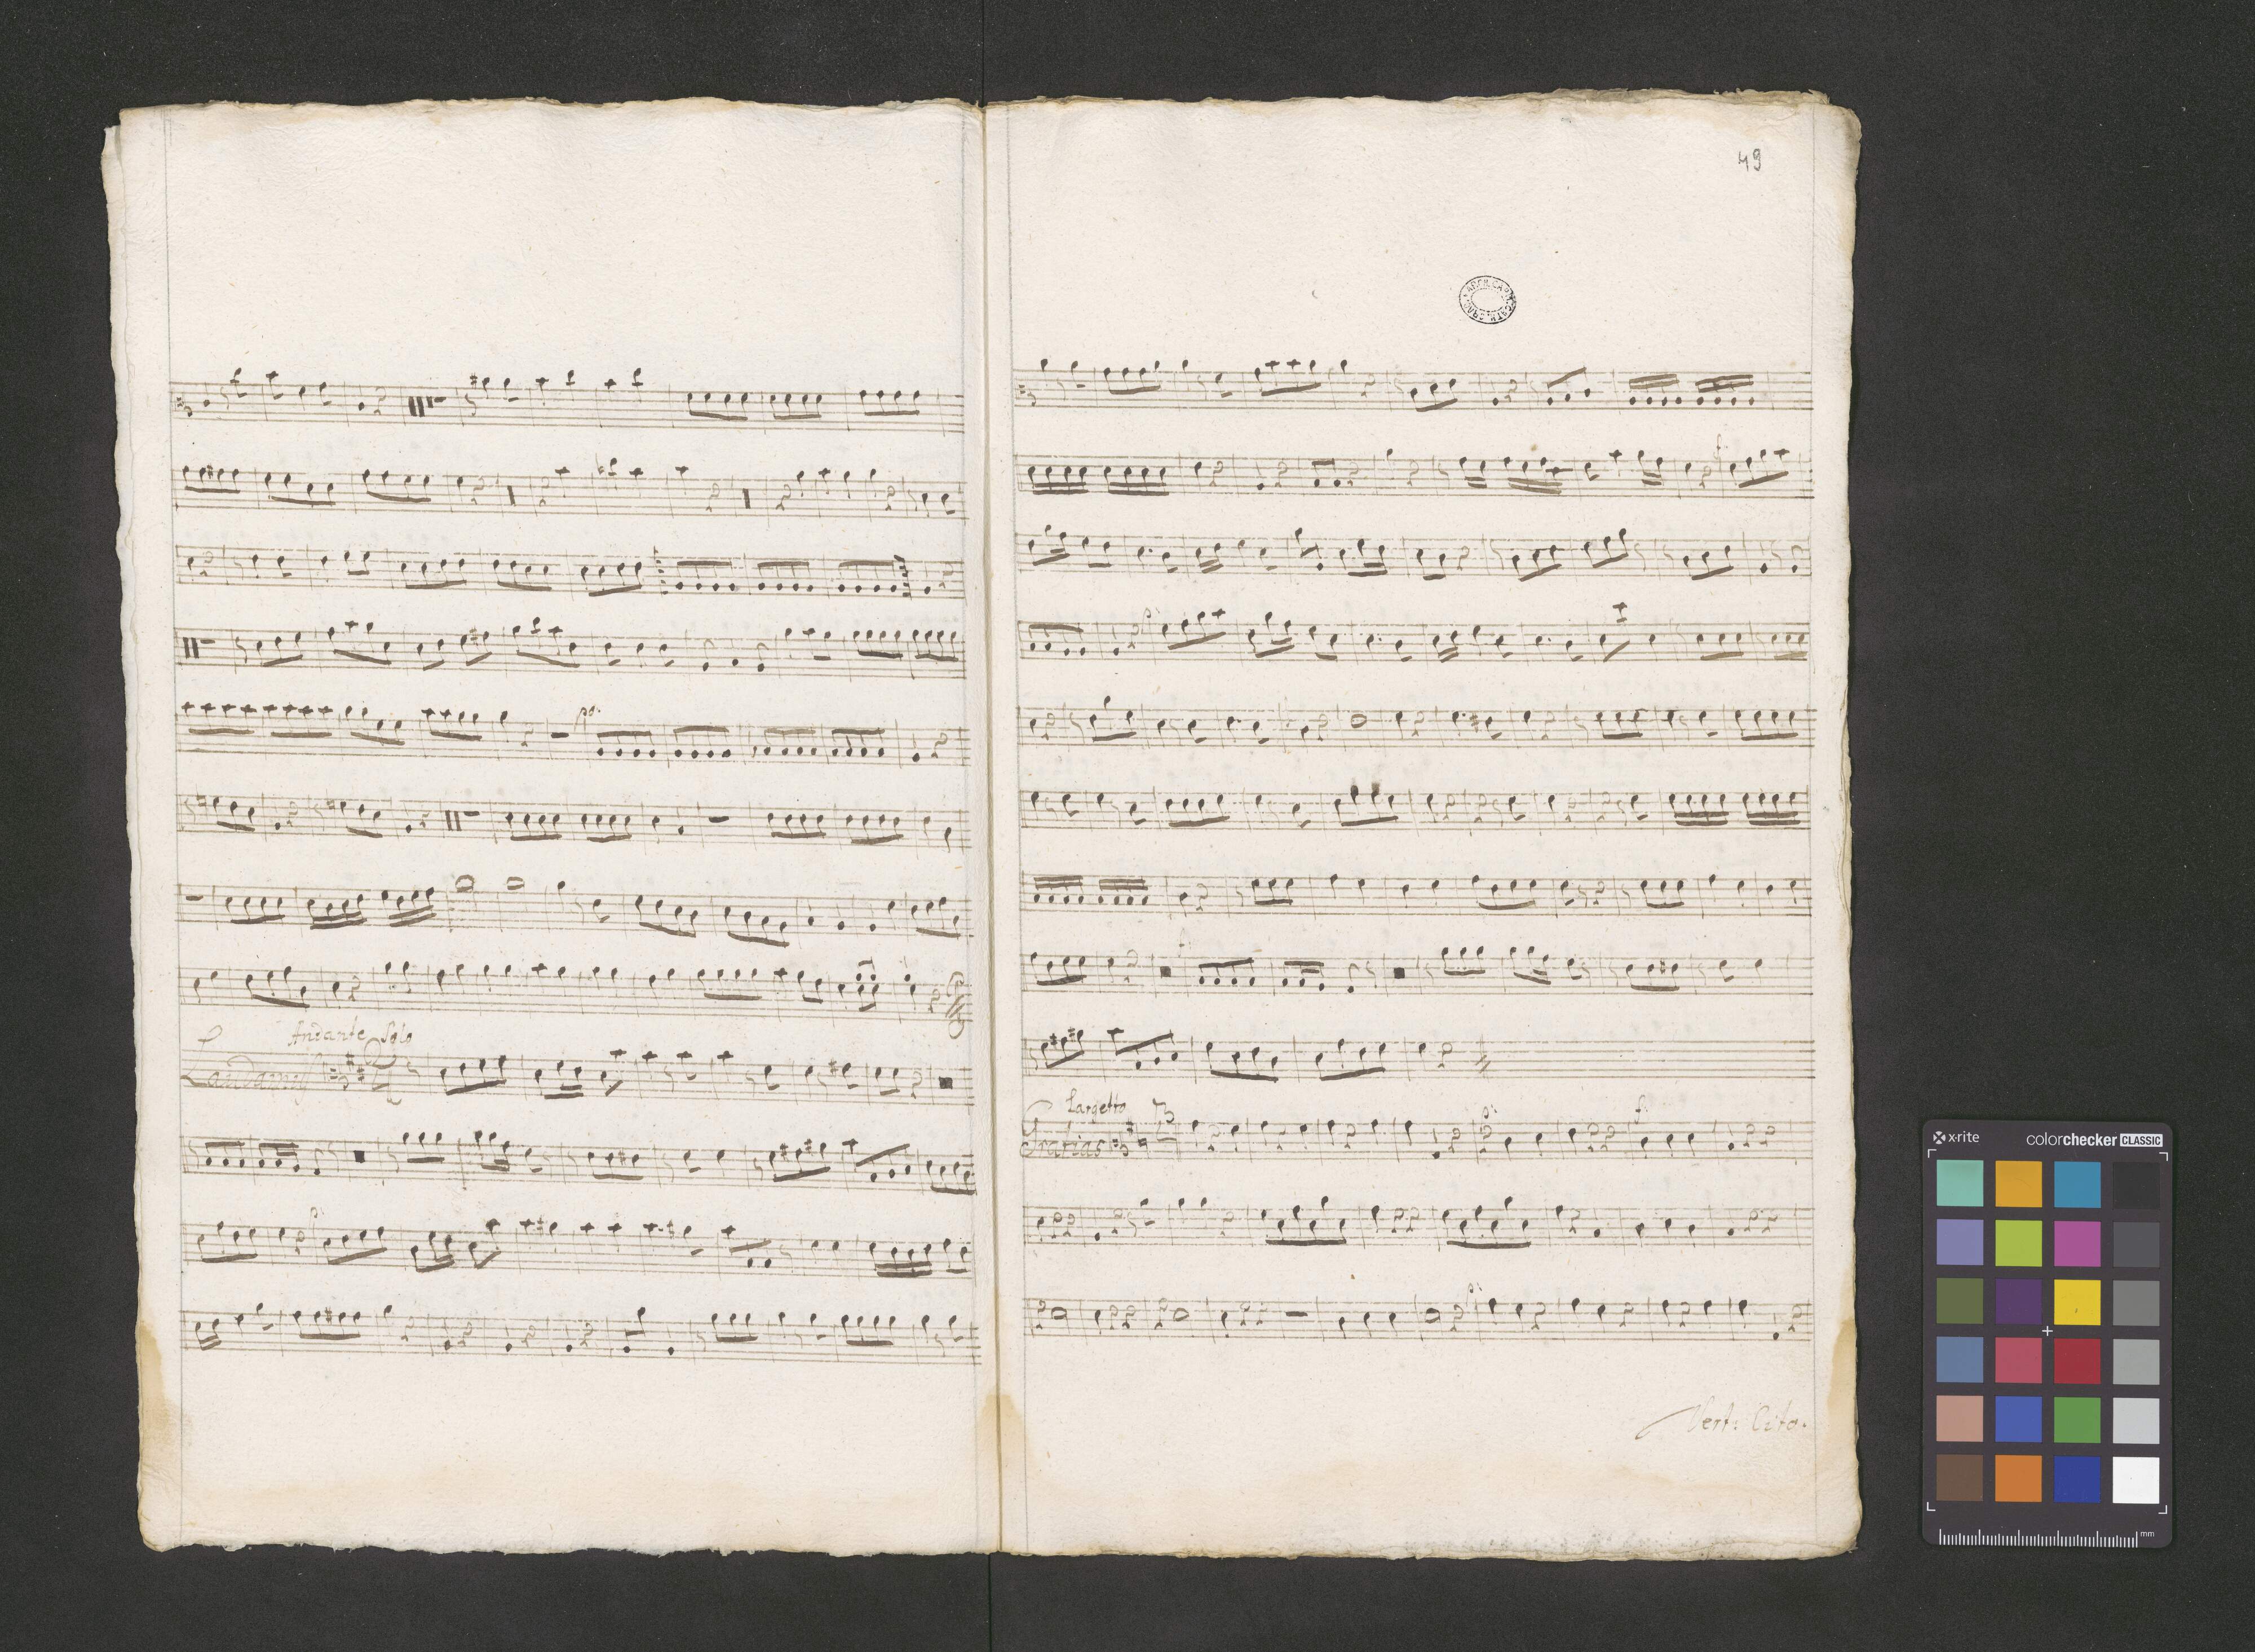 po.
Andante Solo
Laudamus
p:
49
f:
p:
f:
Largetto
Gratias
p:
f:
p:
Vert: Cito.
x-rite
colorchecker CLASSIC
mm